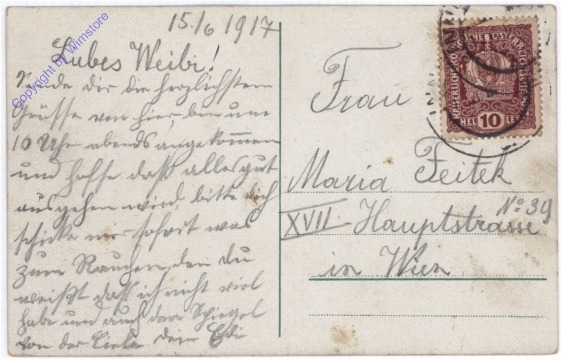 15./6 1917
Liebes Weibi!
sende dir die herzlichsten
Grüsse von hier, bin um
10 Uhr abends angekommen
und hoffe daß alles gut
ausgehen wird, bitte dich
schicke mir sofort was
zum Rauchen, den du
weißt daß ich nicht viel
habe und auch das Spiegel
von der Liesl. dein Edi
Frau
Maria Zeitek
XVII Hauptstrasse No 39
in Wien
KAISERLICHE KÖNIGLICHE ÖSTERREICHISCHE POST
HELLER
10
Copyright by Wimstore